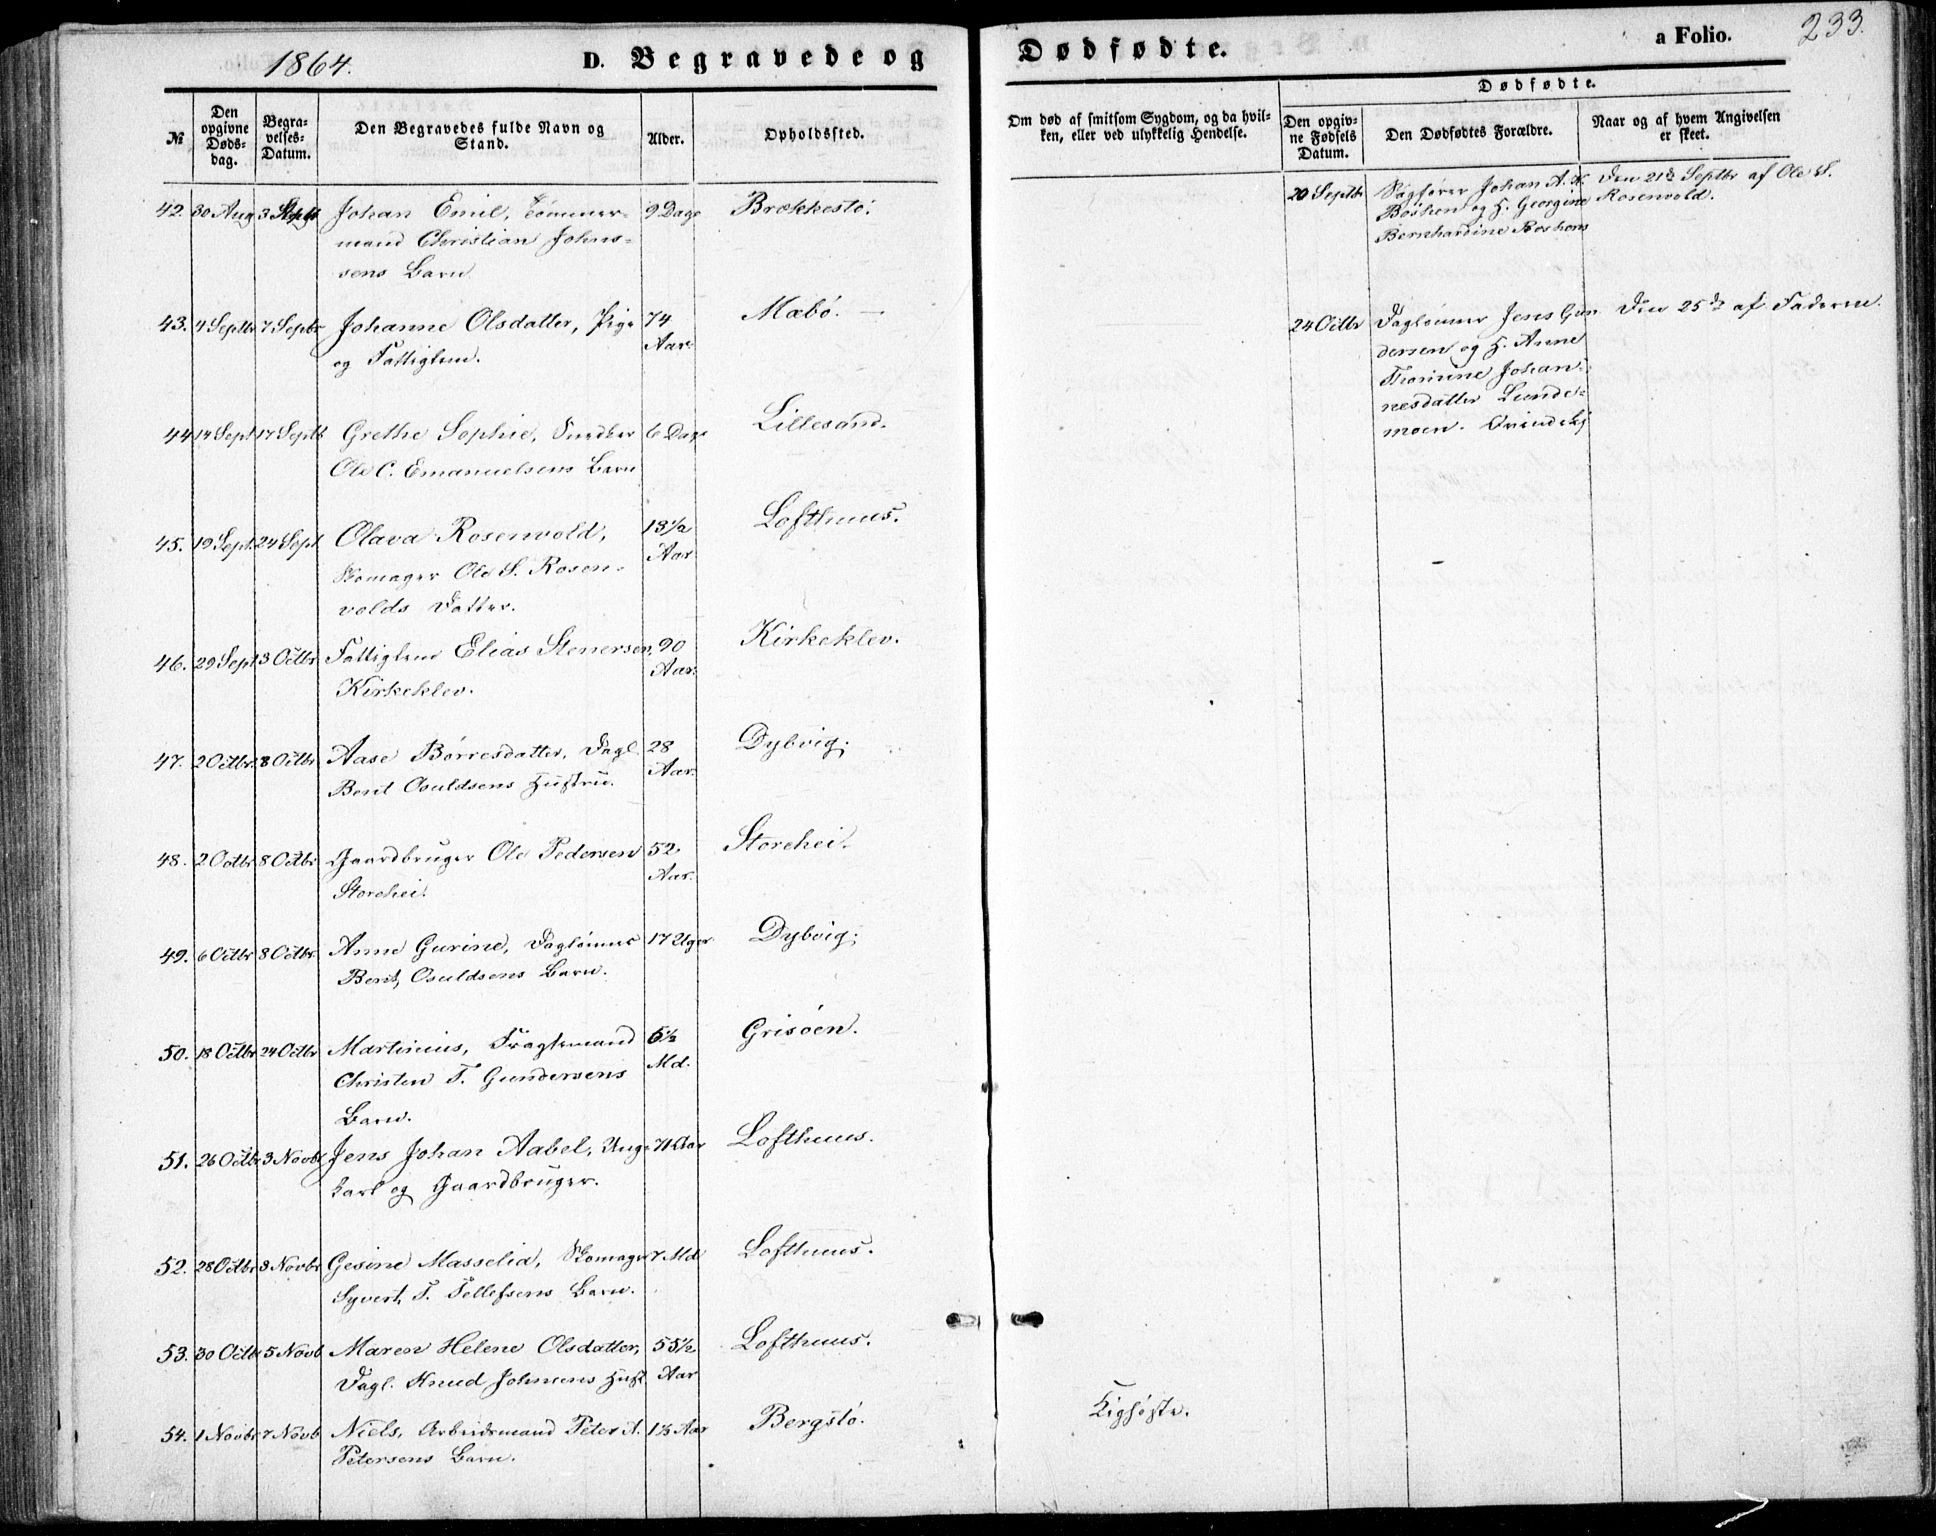 1864.
D. Begravede og
Dødfødte.
a Folio.
233.
№
Den opgivne Døds-dag.
Begra-velses-Datum.
Den Begravedes fulde Navn og Stand.
Alder.
Opholdssted.
Om død af smitsom Sygdom, og da hvil-
ken, eller ved ulykkelig Hendelse.
Dødfødte.
Den opgiv-ne Fødsels Datum.
Den Dødfødtes Forældre.
Naar og af hvem Angivelsen er skeet.
42. 30 Aug 3 Septb Johan Emil, Tømmer- 9 Dage Brækkestø.
mand Christian Johns-
sens Barn
43. 4 Septbr 7 Septbr Johanne Olsdatter, Pige 74 Mæbø.
og Fattiglem. Aar.
44 14 Sept 17 Septb Grethe Sophie, Snedker 6 Dage Lillesand.
Ole C. Emanuelsens Barn
45. 19 Sept. 24 Sept Olava Rosenvold, 13½ Lofthuus.
Skomager Ole S. Rosen- Aar
volds Datter.
46. 29 Sept 3 Octbr Fattiglem Elias Stenersen, 90 Kirkeklev.
Kirkeklev. Aar.
47. 2 Octbr. 8 Octbr. Aase Børresdatter, Dagl. 28 Dybvig.
Berit Osuldsens Hustru. Aar.
48. 2 Octbr 8 Octbr Gaardbruger Ole Pedersen 52 Storehei.
Storehei. Aar.
49. 6 Octbr 8 Octbr. Anne Gurine, Dagleiner 17 Uger Dybvig.
Berit Osuldsens Barn.
50. 18 Octbr 24 Octbr Martinius, Fragtemand 6½ Grisøen.
Christen T. Gundersens Md.
Barn.
51. 26 Octbr 3 Novbr Jens Johan Aabel, Unge 71 Aar Lofthuus.
karl og Gaardbruger.
52. 28 Octbr 3 Novbr Gesine Masselia, Skomager 7 Md Lofthuus.
Syvert T. Tellefsens Barn.
53. 30 Octbr 5 Novb Maren Helene Olsdatter, 55½ Lofthuus.
Dagl. Knud Johnsens Hust. Aar
54. 1 Novbr 7 Novb Niels, Arbeidsmand Peter A. 1⅓ Aar Bergstø. Kighoste.
Petersens Barn.
20 Septbr Sagfører Johan A. K. Den 21de Septbr af Ole S.
Boshen og H. Georgine Rosenvold.
Bernhardine Boshen
24 Octbr Dagleiner Jens Gun Den 25de af Faderen.
dersen og H. Anne
Thorinne Johan-
nesdatter Lunde-
moen.